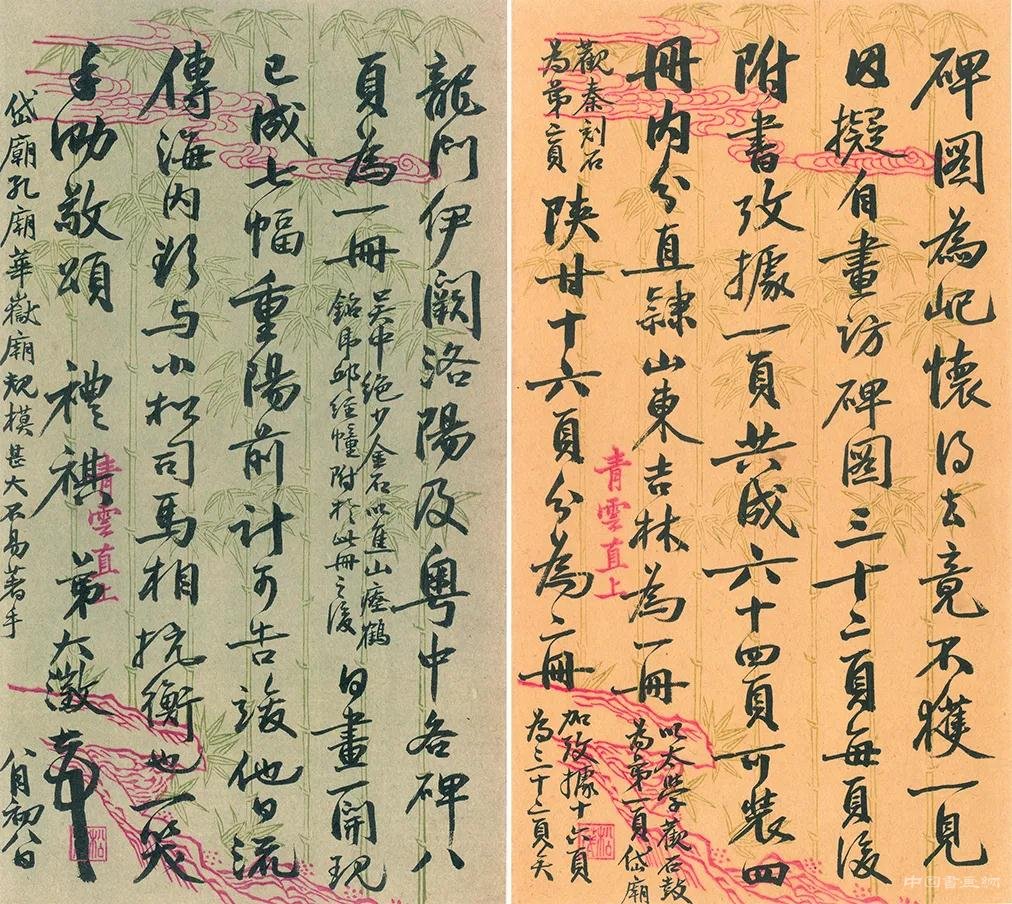 碑圖為屺懷得去竟不獲一見
因擬自畫訪碑圖三十二頁每頁後
附書攷據一頁共成六十四頁可裝四
冊內分直隸山東吉林為一冊
以太學觀石鼓
為第一頁岱廟
觀秦刻石
為第二頁
陝甘十六頁分為二冊
加攷據十六頁
為三十二頁矣
青雲直上
龍門伊闕洛陽及粵中各碑八
頁為一冊
吳中絕少金石以焦山瘞鶴
銘虎邱經幢附於此冊之後
日畫一開現
已成七幅重陽前計可告竣他日流
傳海內欲與小松司馬相抗衡也一笑
手泐敬頌 禮祺 弟大澂頓首
岱廟孔廟華嶽廟規模甚大不易著手 八月初八日
青雲直上